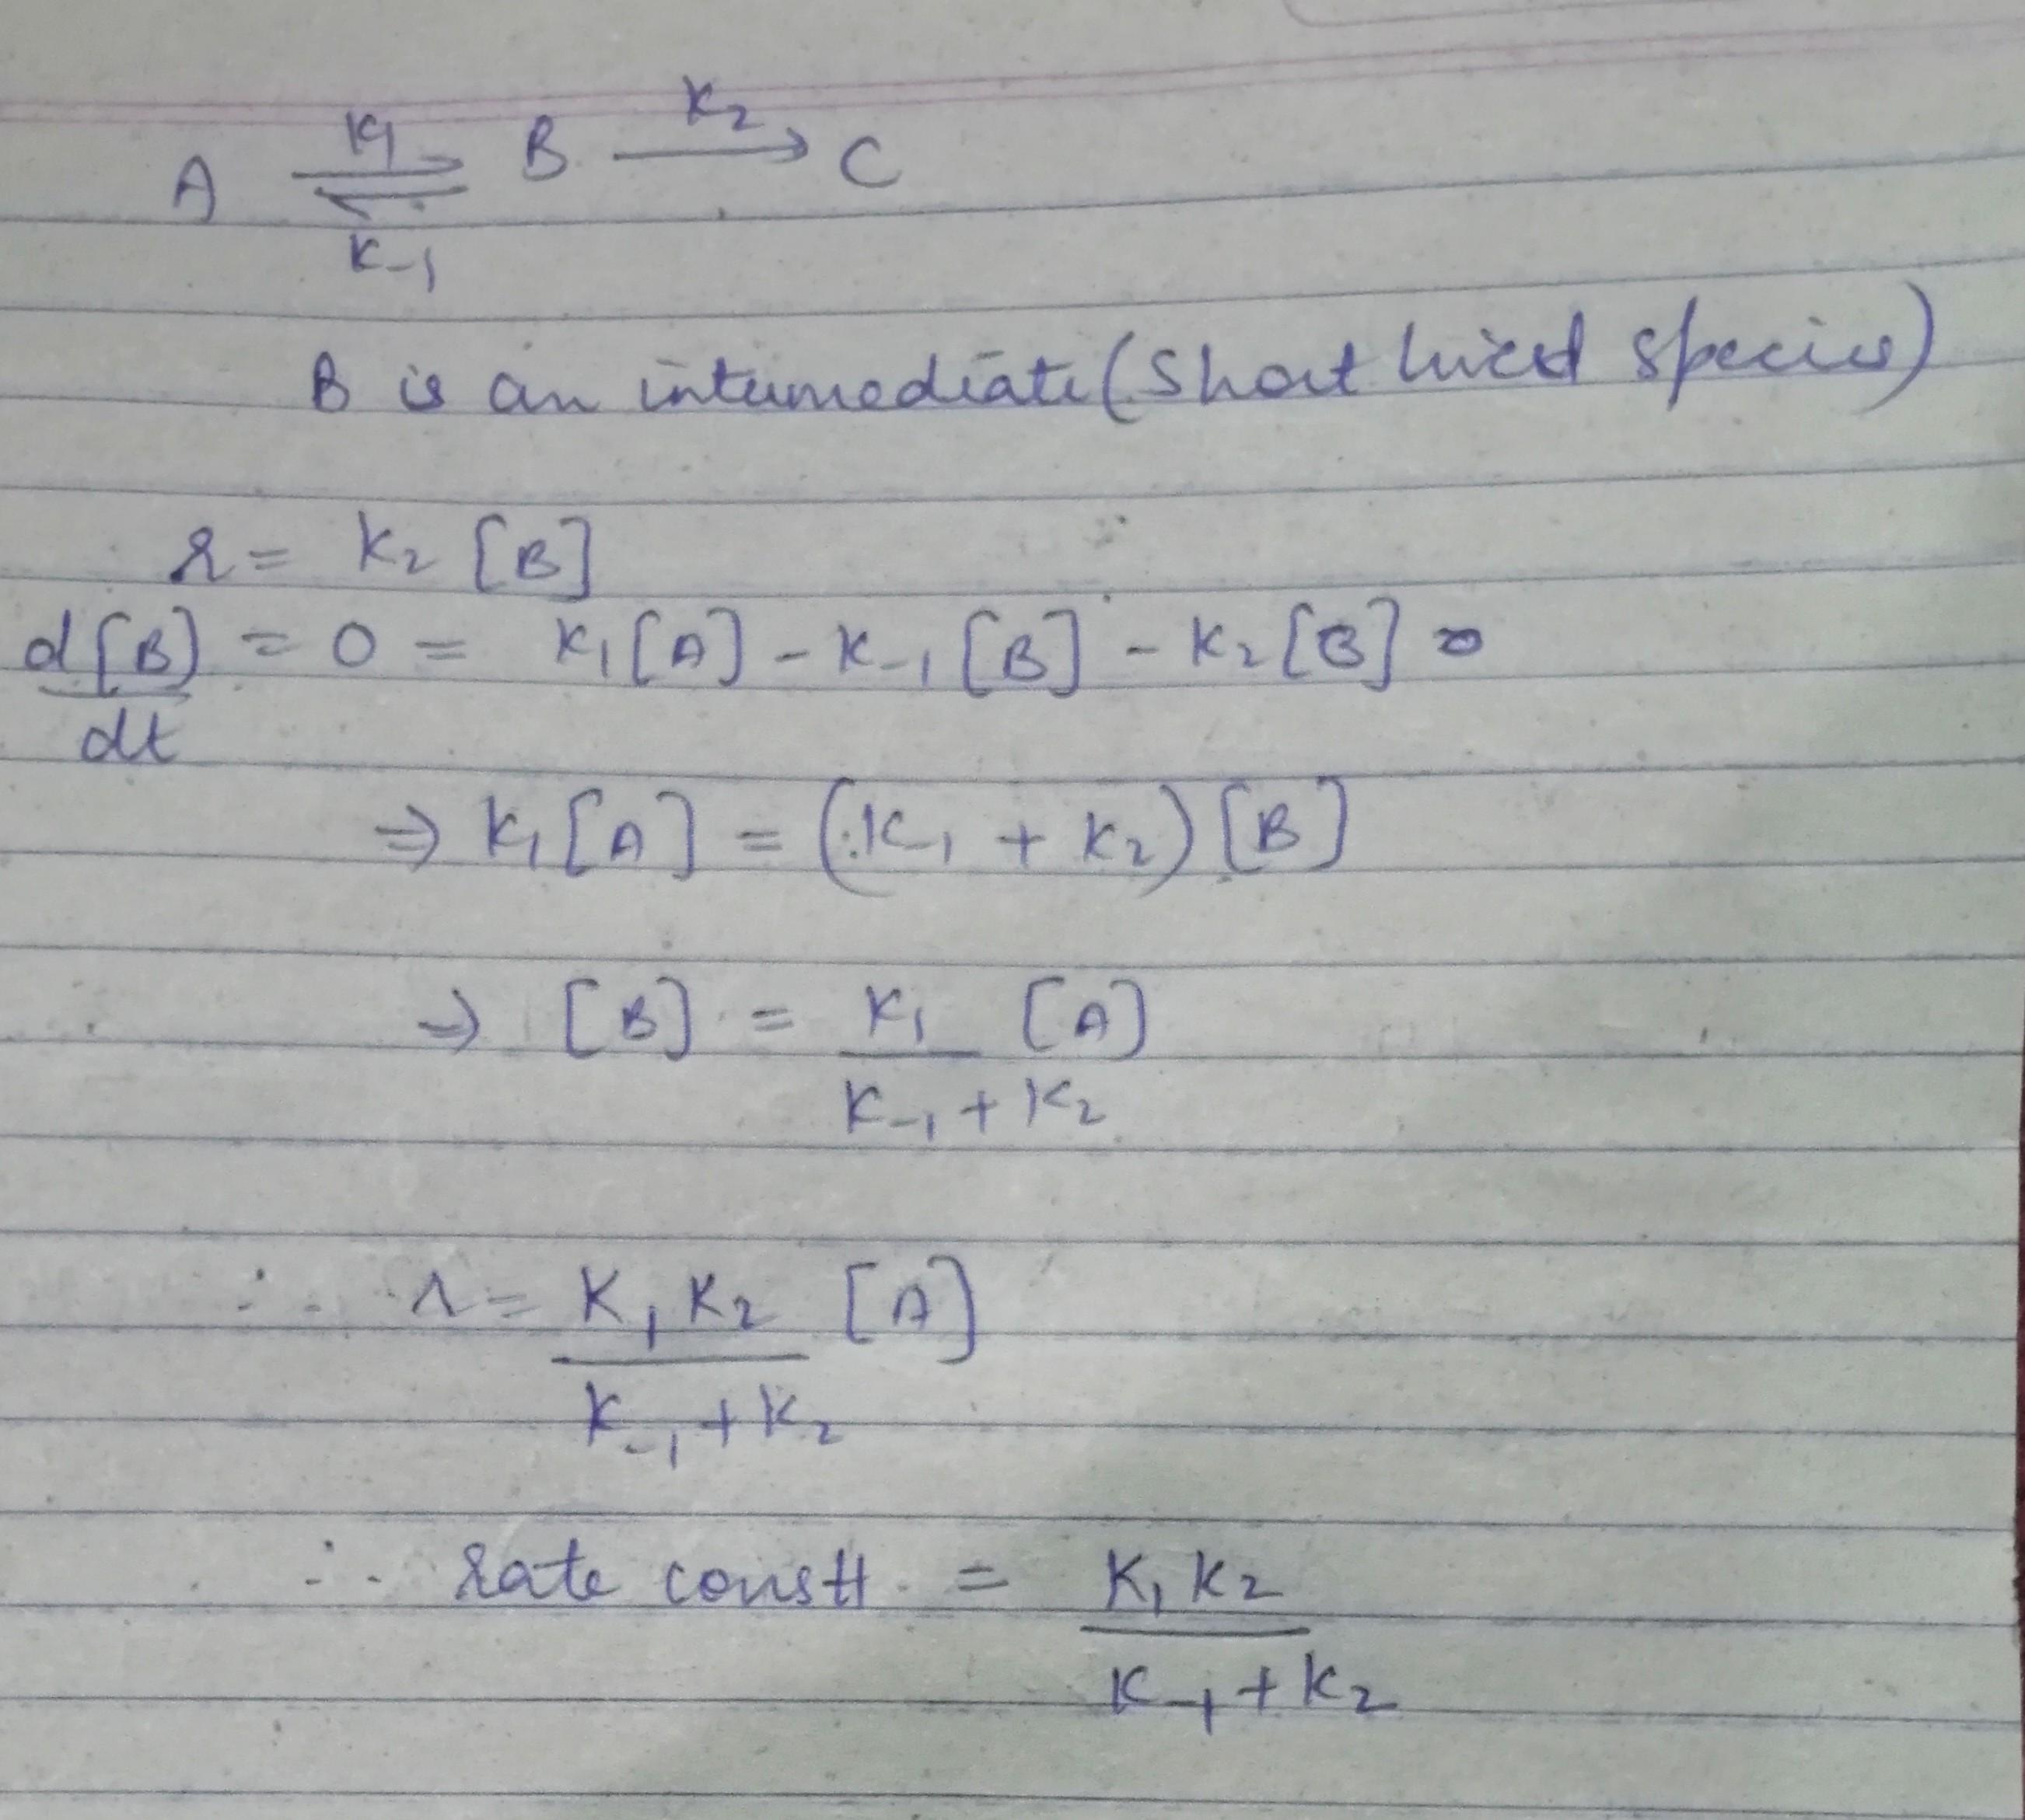 A ⇌ B → C
K1 K2
K-1
B is an intermediate (Short lived species)
r = K2 [B]
d[B]/dt = 0 = K1[A] - K-1[B] - K2[B] =0
⇒ K1[A] = (K-1 + K2)[B]
⇒ [B] = K1/(K-1 + K2) [A]
∴ r = K1K2/(K-1 + K2) [A]
∴ rate constt. = K1K2/(K-1 + K2)